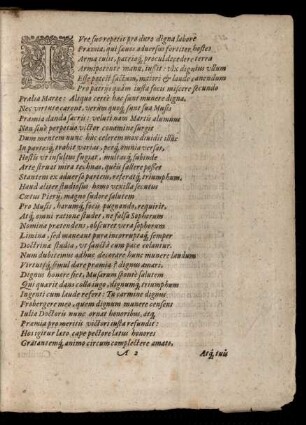 IVre suo repetit pro duro digna labore
Præmia, qui sævos adversus fortiter hostes
Arma tulit, patriaq; procul decedere terra
Armipotente manu, iussit:
Esse potest factum, musis & laude canendum
Pro patrijs quam iusta focis miscere secundo
Prælia Marte: Aliquo certè hæc sunt munere digna.
Nec virtute carent, verùm quoq; sunt sua Musis
Præmia danda sacris: veluti nam Martis alumino
Non sine perpetuo victor committe
Dum mentem nunc huc celerem max dividit illuc
In partesq; trahit varias, perq; omnia versat,
Hostis ut insultus fugiat, multasq; subinde
Arte struat mira technas, queis fallere posset
Stantem ex adversa partem, referatq; triumphum,
Haud aliter studiosus homo vexilla secutus
Cœtus Pierij, magno sudore salutem
Pro Musis, harumq; focis pugnando, requirit.
Atq; omni ratione studet, ne falsa Sophorum
Nomina prætendens, obscuret vera sophorum
Limina, sed maneant pura incorruptaq; semper
Doctrinæ studia, ut sanctâ cum pace colantur.
Num dubitemus adhuc decorare hunc munere laudum
Virtutisq; simul dare præmia? dignus amari,
Dignus honore suit, Musarum sponte salutem
Qui quærit
Ingenti cum laude refert: Tu carmine digni
Probergere meo, quem dignum munere censet
Iulia Doctoris nunc ornat honoribus, atq;
Præmia pro meritis victori iusta refundit:
Hos igitur læto, cape pectore lætus honores
Gratanterq; animo circum complectere amato,
A 2 Atq; tuis